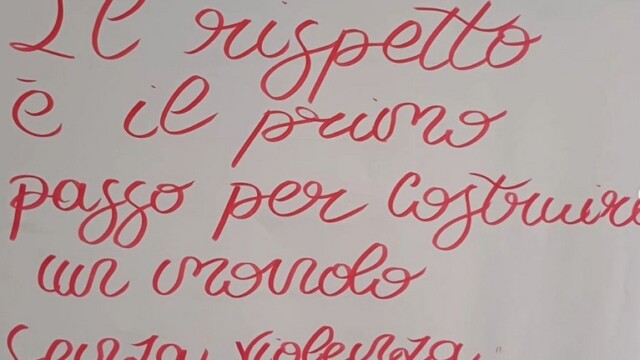 Il rispetto
è il primo
passo per costruire
un mondo
senza violenza